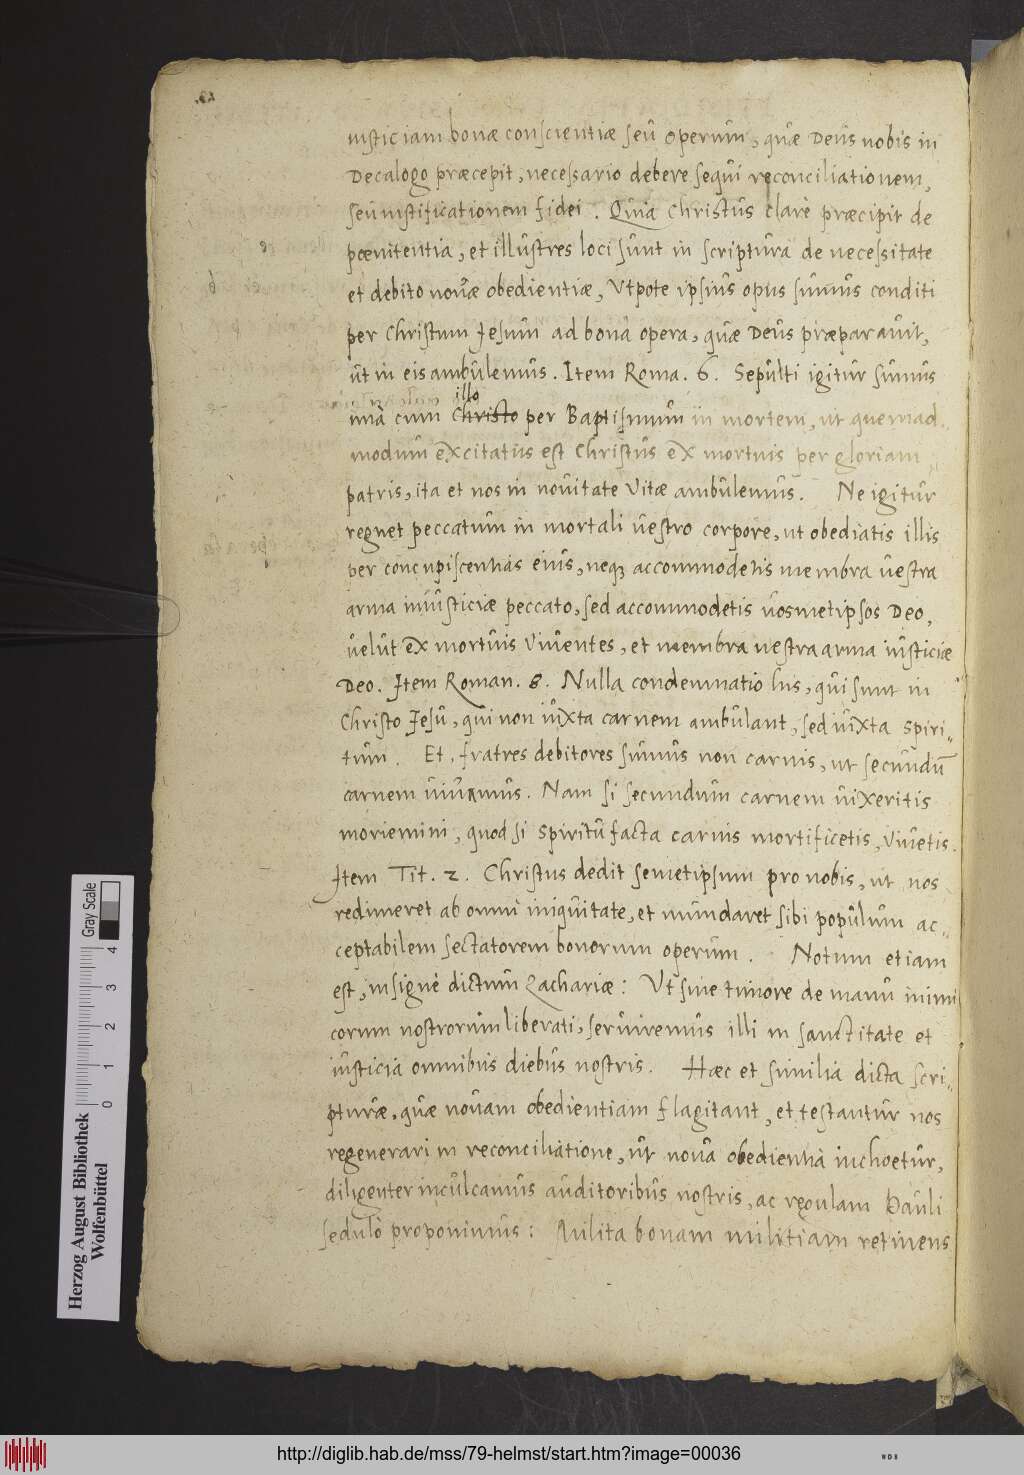 iusticiam bonæ conscientiæ seu operum, quæ Deus nobis in
Decalogo præcepit, necessario debere sequi reconciliationem,
seu iustificationem fidei. Quia Christus clarè præcipit de
pœnitentia, et illustres loci sunt in scriptura de necessitate
et debito nouæ obedientiæ, Vtpote ipsius opus sumus conditi
per Christum Jesum ad bona opera, quæ Deus præparauit,
ut in eis ambulemus. Item Roma. 6. Sepulti igitur sumus
illo
unà cum Christo per Baptismum in mortem, ut quemad„
modum excitatus est Christus ex mortuis per gloriam
patris, ita et nos in nouitate Vitæ ambulemus. Ne igitur
regnet peccatum in mortali uestro corpore, ut obediatis illis
per concupiscentias eius, neq; accommodetis membra uestra
arma iniusticiæ peccato, sed accommodetis uosmetipsos Deo,
uelut ex mortuis Viuentes, et membra uestra arma iusticiæ
Deo. Item Roman. 8. Nulla condemnatio his, qui sunt in
Christo Jesu, qui non iuxta carnem ambulant, sed iuxta spiri„
tum. Et, fratres debitores sumus non carnis, ut secundū
carnem uiuamus. Nam si secundum carnem uixeritis
moriemini, quod si spiritu facta carnis mortificetis, Viuetis.
Item Tit. 2. Christus dedit semetipsum pro nobis, ut nos
redimeret ab omni iniquitate, et mundaret sibi populum ac„
ceptabilem sectatorem bonorum operum. Notum etiam
est, insigne dictum Zachariæ: Vt sine timore de manu inimi
corum nostrorum liberati, seruiremus illi in sanctitate et
iusticia omnibus diebus nostris. Hæc et similia dicta scri„
pturæ, quæ nouam obedientiam flagitant, et testantur nos
regenerari in reconciliatione, ut noua obedientia inchoetur,
diligenter inculcamus auditoribus nostris, ac regulam Pauli
sedulò proponimus: Milita bonam militiam retinens
Herzog August Bibliothek
Wolfenbüttel
0 1 2 3 4
Gray Scale
http://diglib.hab.de/mss/79-helmst/start.htm?image=00036
WDB